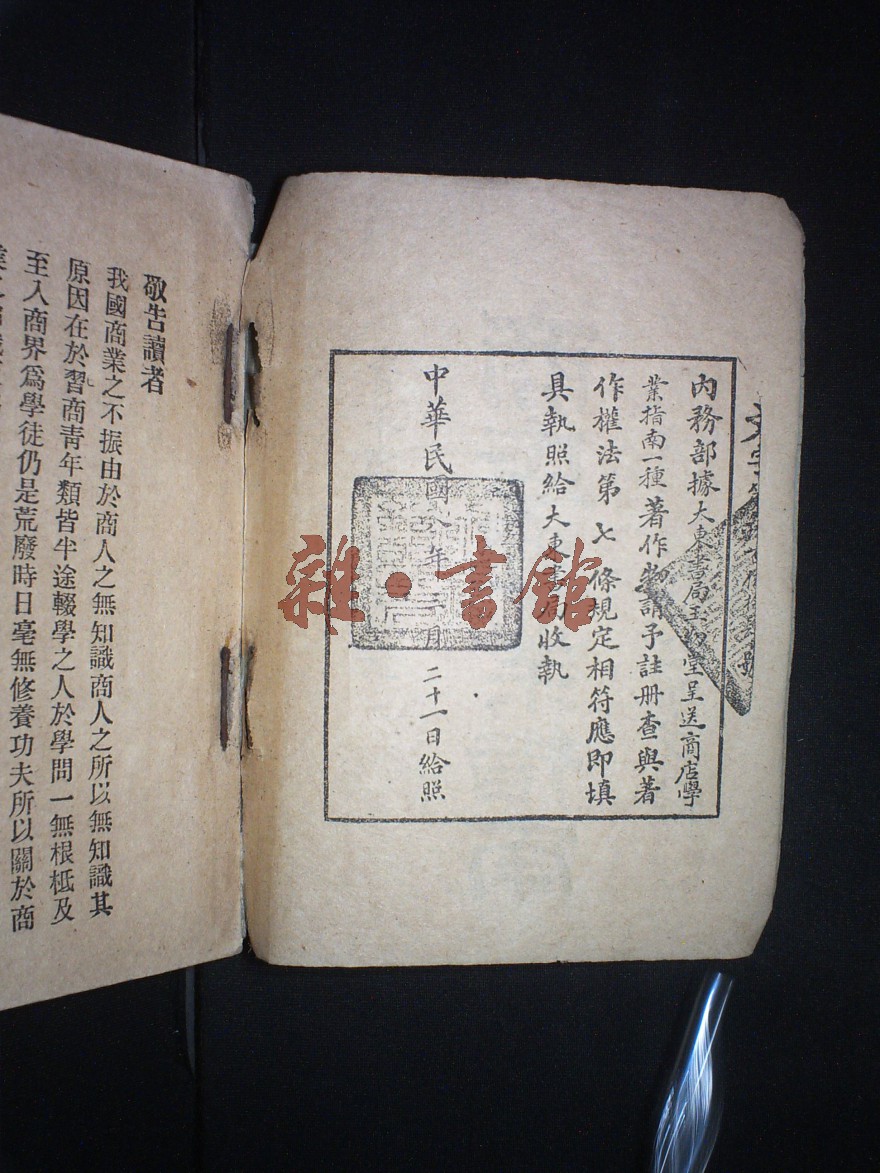 內務部據大東書局王幼堂呈送商店學
業指南一種著作物請予註冊查與著
作權法第七條規定相符應即填
具執照給大東書局收執
中華民國八年二月二十一日給照
敬告讀者
我國商業之不振由於商人之無知識商人之所以無知識其
原因在於習商青年類皆半途輟學之人於學問一無根柢及
至入商界爲學徒仍是荒廢時日毫無修養功夫所以關於商
雜·書館